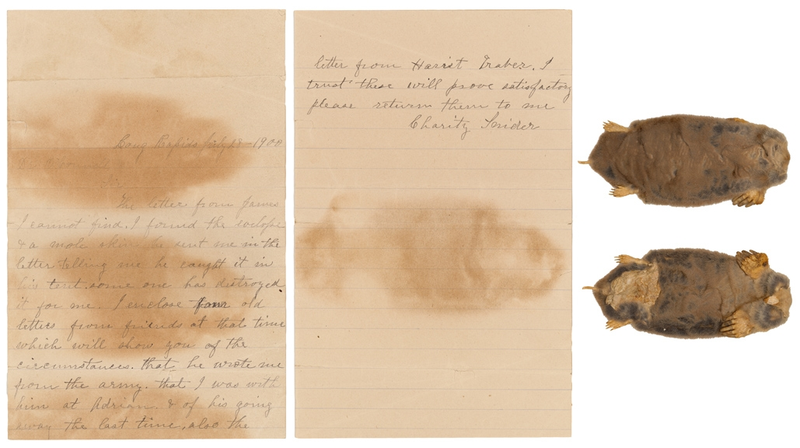 Long Rapids July 18 1900
The letter from James
I cannot find. I found the envelope
& a mole skin he sent me in the
letter telling me he caught it in
his tent some one has distroyed
it for me. I enclose old
letters from friends at that time
which will show you of the
circumstances. that he wrote me
from the army. that I was with
him at Adrian. & of his going
away the last time, also the
letter from Harist I
trust these will prove satisfactory
please return them to me
Charity Snider